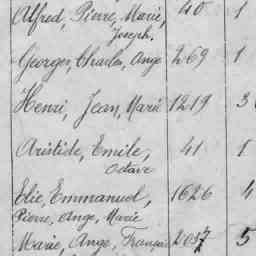 Alfred, Pierre, Marie, 40 1
Joseph.
Georges, Charles, Ange 269 1
Henri, Jean, Marie 1219 3
Aristide, Emile, 41 1
Octave
Elie, Emmanuel, 1626 4
Pierre, Ange, Marie
Marie, Ange, François 5